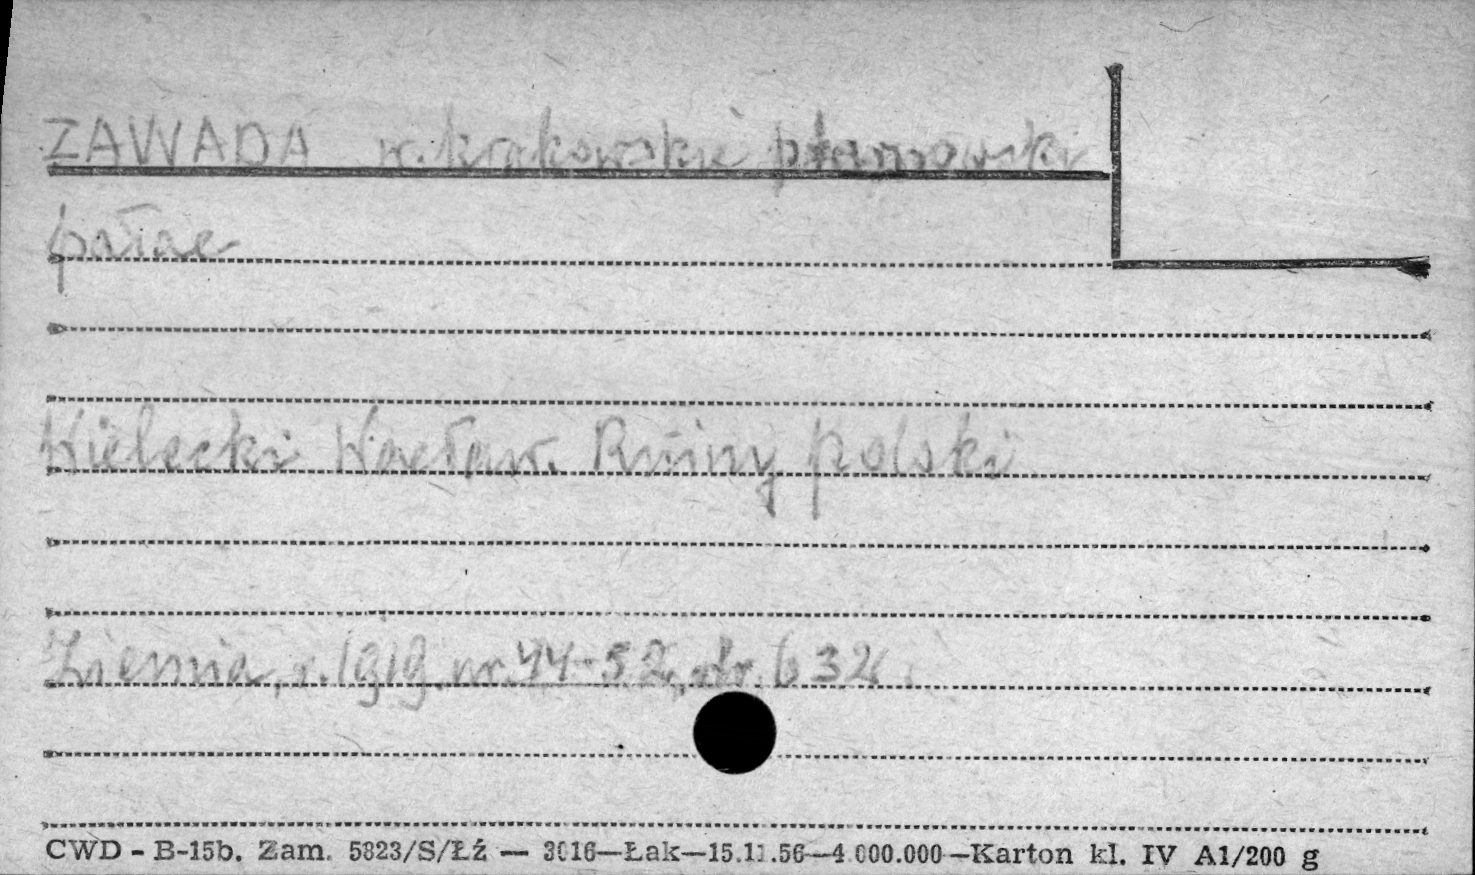 ZAWADA w. krakowskie p. tarnowski
pałac
Wielecki Wacław. Ruiny polski
Ziemia, r. 1919, nr. 44-52, str. 632.
CWD - B-15b. Zam. 5823/S/Łź — 3016—Łak—15.11.56—4.000.000—Karton kl. IV A1/200 g